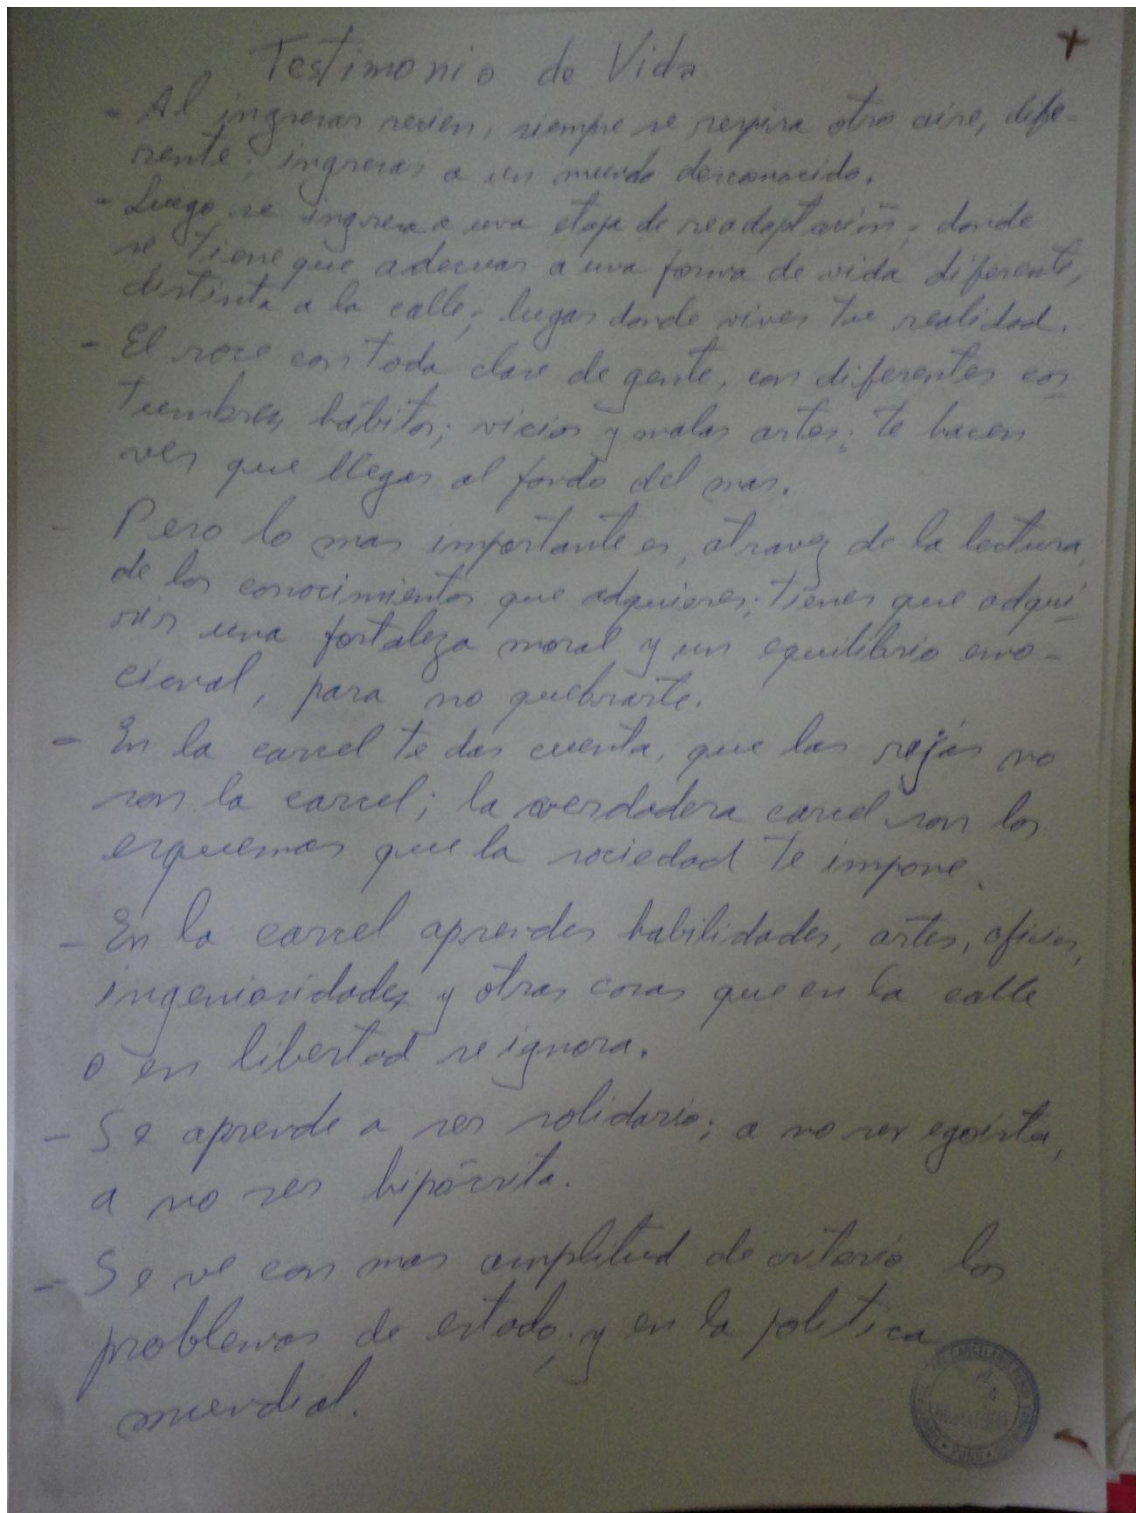 Testimonio de Vida
- Al ingresar recien, siempre se respira otro aire, dife-
rente; ingresas a un mundo desconocido.
- Luego se ingresa a una etapa de readaptación; donde
se tiene que adecuar a una forma de vida diferente,
distinta a la calle; lugar donde vives tu realidad.
- El roce con toda clase de gente, con diferentes cos
tumbres, habitos; vicios y malas artes; te hacen
ver que llegas al fondo del mar.
- Pero lo mas importante es, atravez de la lectura,
de los conocimientos que adquieres; tienes que adqui
rir una fortaleza moral y un equilibrio emo-
cional, para no quebrarte.
- En la carcel te das cuenta, que las rejas no
son la carcel; la verdadera carcel son los
esquemas que la sociedad te impone.
- En la carcel aprendes habilidades, artes, oficios,
ingeniosidades y otras cosas que en la calle
o en libertad se ignora.
- Se aprende a ser solidario; a no ser egoista,
a no ser hipócrita.
- Se ve con mas amplitud de criterio los
problemas de estado; y en la politica
mundial.
PUNO